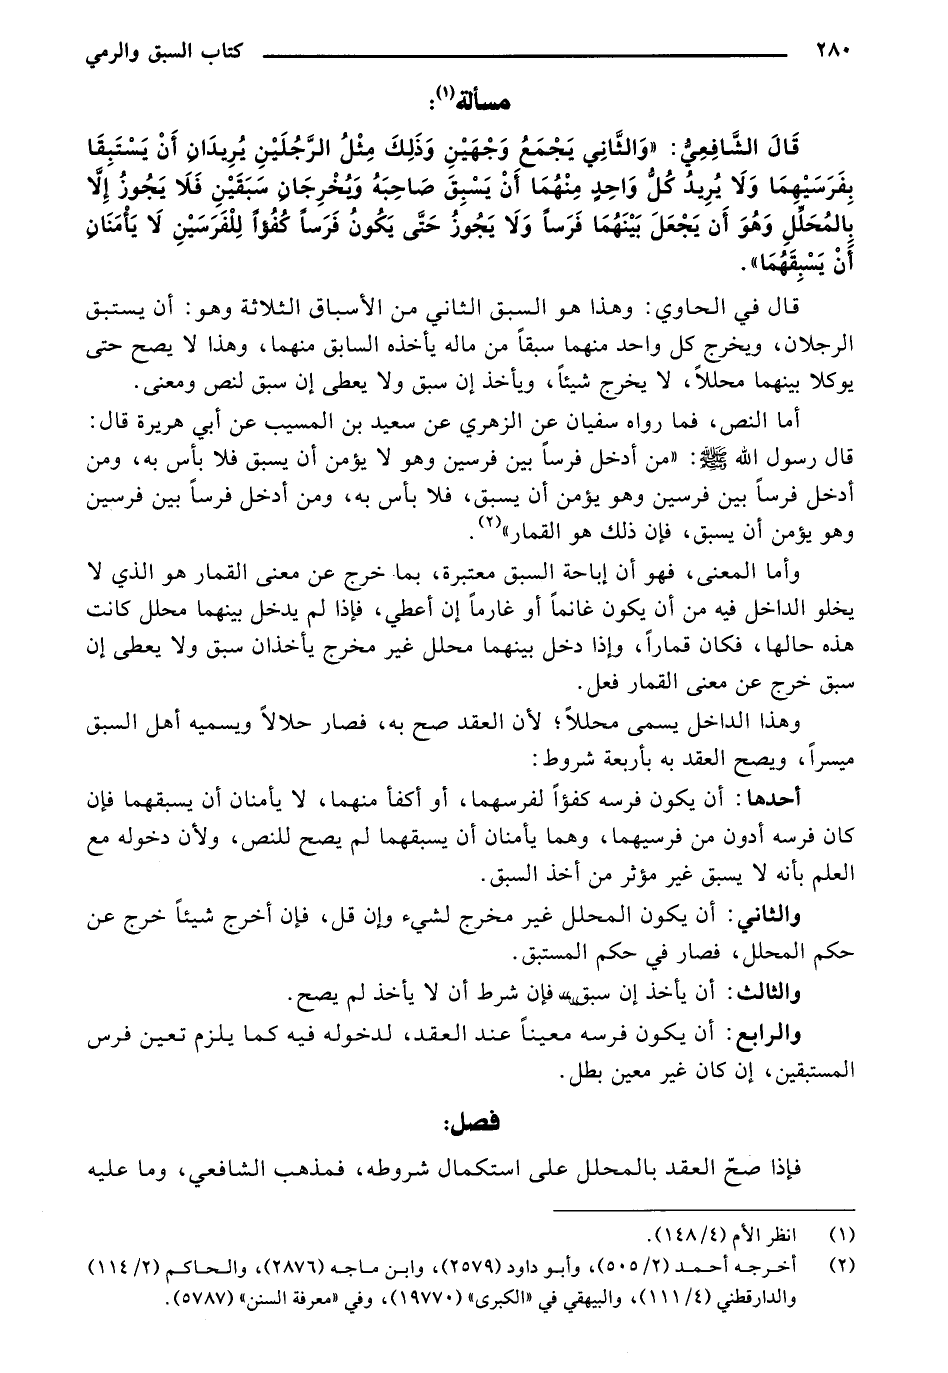 ٢٨٠ كتاب السبق والرمي
مسألة(١):
قَالَ الشَّافِعِيُّ: «وَالثَّانِي يَجْمَعُ وَجْهَيْنِ وَذَلِكَ مِثْلُ الرَّجُلَيْنِ يُرِيدَانِ أَنْ يَسْتَبِقَا
بِفَرَسَيْهِمَا وَلَا يُرِيدُ كُلُّ وَاحِدٍ مِنْهُمَا أَنْ يَسْبِقَ صَاحِبَهُ وَيُخْرِجَانِ سَبَقَيْنِ فَلَا يَجُوزُ إِلَّا
بِالمُحَلِّلِ وَهُوَ أَن يَجْعَلَ بَيْنَهُمَا فَرَساً وَلَا يَجُوزُ حَتَّى يَكُونُ فَرَساً كُفُؤاً لِلْفَرَسَيْنِ لَا يَأْمَنَانِ
أَنْ يَسْبِقَهُمَا».
قال في الحاوي: وهذا هو السبق الثاني من الأسباق الثلاثة وهو: أن يستبق
الرجلان، ويخرج كل واحد منهما سبقاً من ماله يأخذه السابق منهما، وهذا لا يصح حتى
يوكلا بينهما محللاً، لا يخرج شيئاً، ويأخذ إن سبق ولا يعطى إن سبق لنص ومعنى.
أما النص، فما رواه سفيان عن الزهري عن سعيد بن المسيب عن أبي هريرة قال:
قال رسول الله ﷺ: «من أدخل فرساً بين فرسين وهو لا يؤمن أن يسبق فلا بأس به، ومن
أدخل فرساً بين فرسين وهو يؤمن أن يسبق، فلا بأس به، ومن أدخل فرساً بين فرسين
وهو يؤمن أن يسبق، فإن ذلك هو القمار»(٢).
وأما المعنى، فهو أن إباحة السبق معتبرة، بما خرج عن معنى القمار هو الذي لا
يخلو الداخل فيه من أن يكون غانماً أو غارماً إن أعطي، فإذا لم يدخل بينهما محلل كانت
هذه حالها، فكان قماراً، وإذا دخل بينهما محلل غير مخرج يأخذان سبق ولا يعطى إن
سبق خرج عن معنى القمار فعل.
وهذا الداخل يسمى محللاً؛ لأن العقد صح به، فصار حلالاً ويسميه أهل السبق
ميسراً، ويصح العقد به بأربعة شروط:
أحدها: أن يكون فرسه كفؤاً لفرسهما، أو أكفأ منهما، لا يأمنان أن يسبقهما فإن
كان فرسه أدون من فرسيهما، وهما يأمنان أن يسبقهما لم يصح للنص، ولأن دخوله مع
العلم بأنه لا يسبق غير مؤثر من أخذ السبق.
والثاني: أن يكون المحلل غير مخرج لشيء وإن قل، فإن أخرج شيئاً خرج عن
حكم المحلل، فصار في حكم المستبق.
والثالث: أن يأخذ إن سبق فإن شرط أن لا يأخذ لم يصح.
والرابع: أن يكون فرسه معيناً عند العقد، لدخوله فيه كما يلزم تعين فرس
المستبقين، إن كان غير معين بطل.
فصل:
فإذا صحّ العقد بالمحلل على استكمال شروطه، فمذهب الشافعي، وما عليه
(١) انظر الأم (٤/ ١٤٨).
(٢) أخرجه أحمد (٢/ ٥٠٥)، وأبو داود (٢٥٧٩)، وابن ماجه (٢٨٧٦)، والحاكم (٢/ ١١٤)
والدارقطني (٤/ ١١١)، والبيهقي في «الكبرى» (١٩٧٧٠)، وفي «معرفة السنن» (٥٧٨٧).